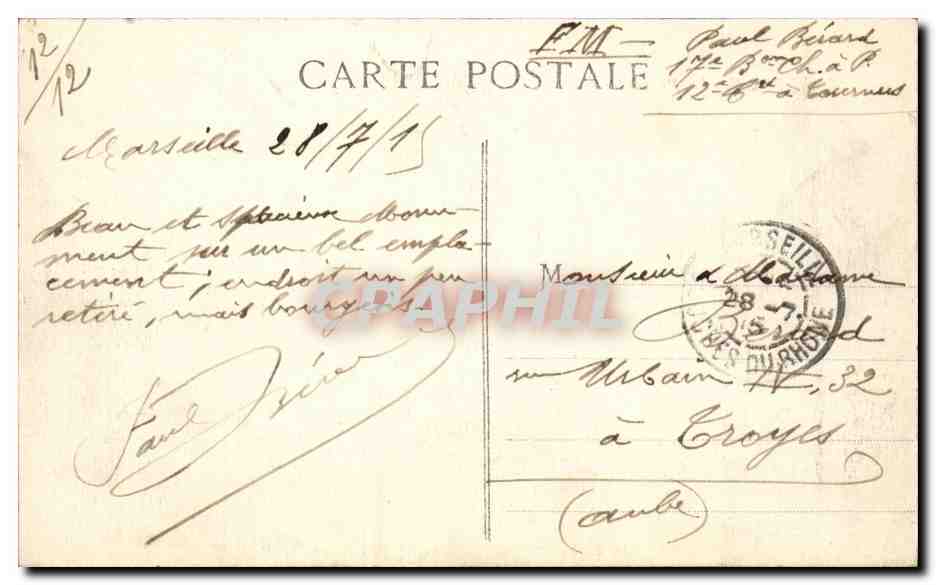 12/12
FM — Paul Bérard
CARTE POSTALE
17e Bon Ch. à P.
12e Cie à Tournus
Marseille 28/7/15
Beau et spacieux Monu-
ment sur un bel empla-
cement; endroit un peu
retiré, mais bourgeois.
Paul Bérard
Monsieur & Madame
Bérard
rue Urbain IV, 32
à Troyes
(Aube)
MARSEILLE
28 -7
15
BCHES DU RHONE
CPAPHIL